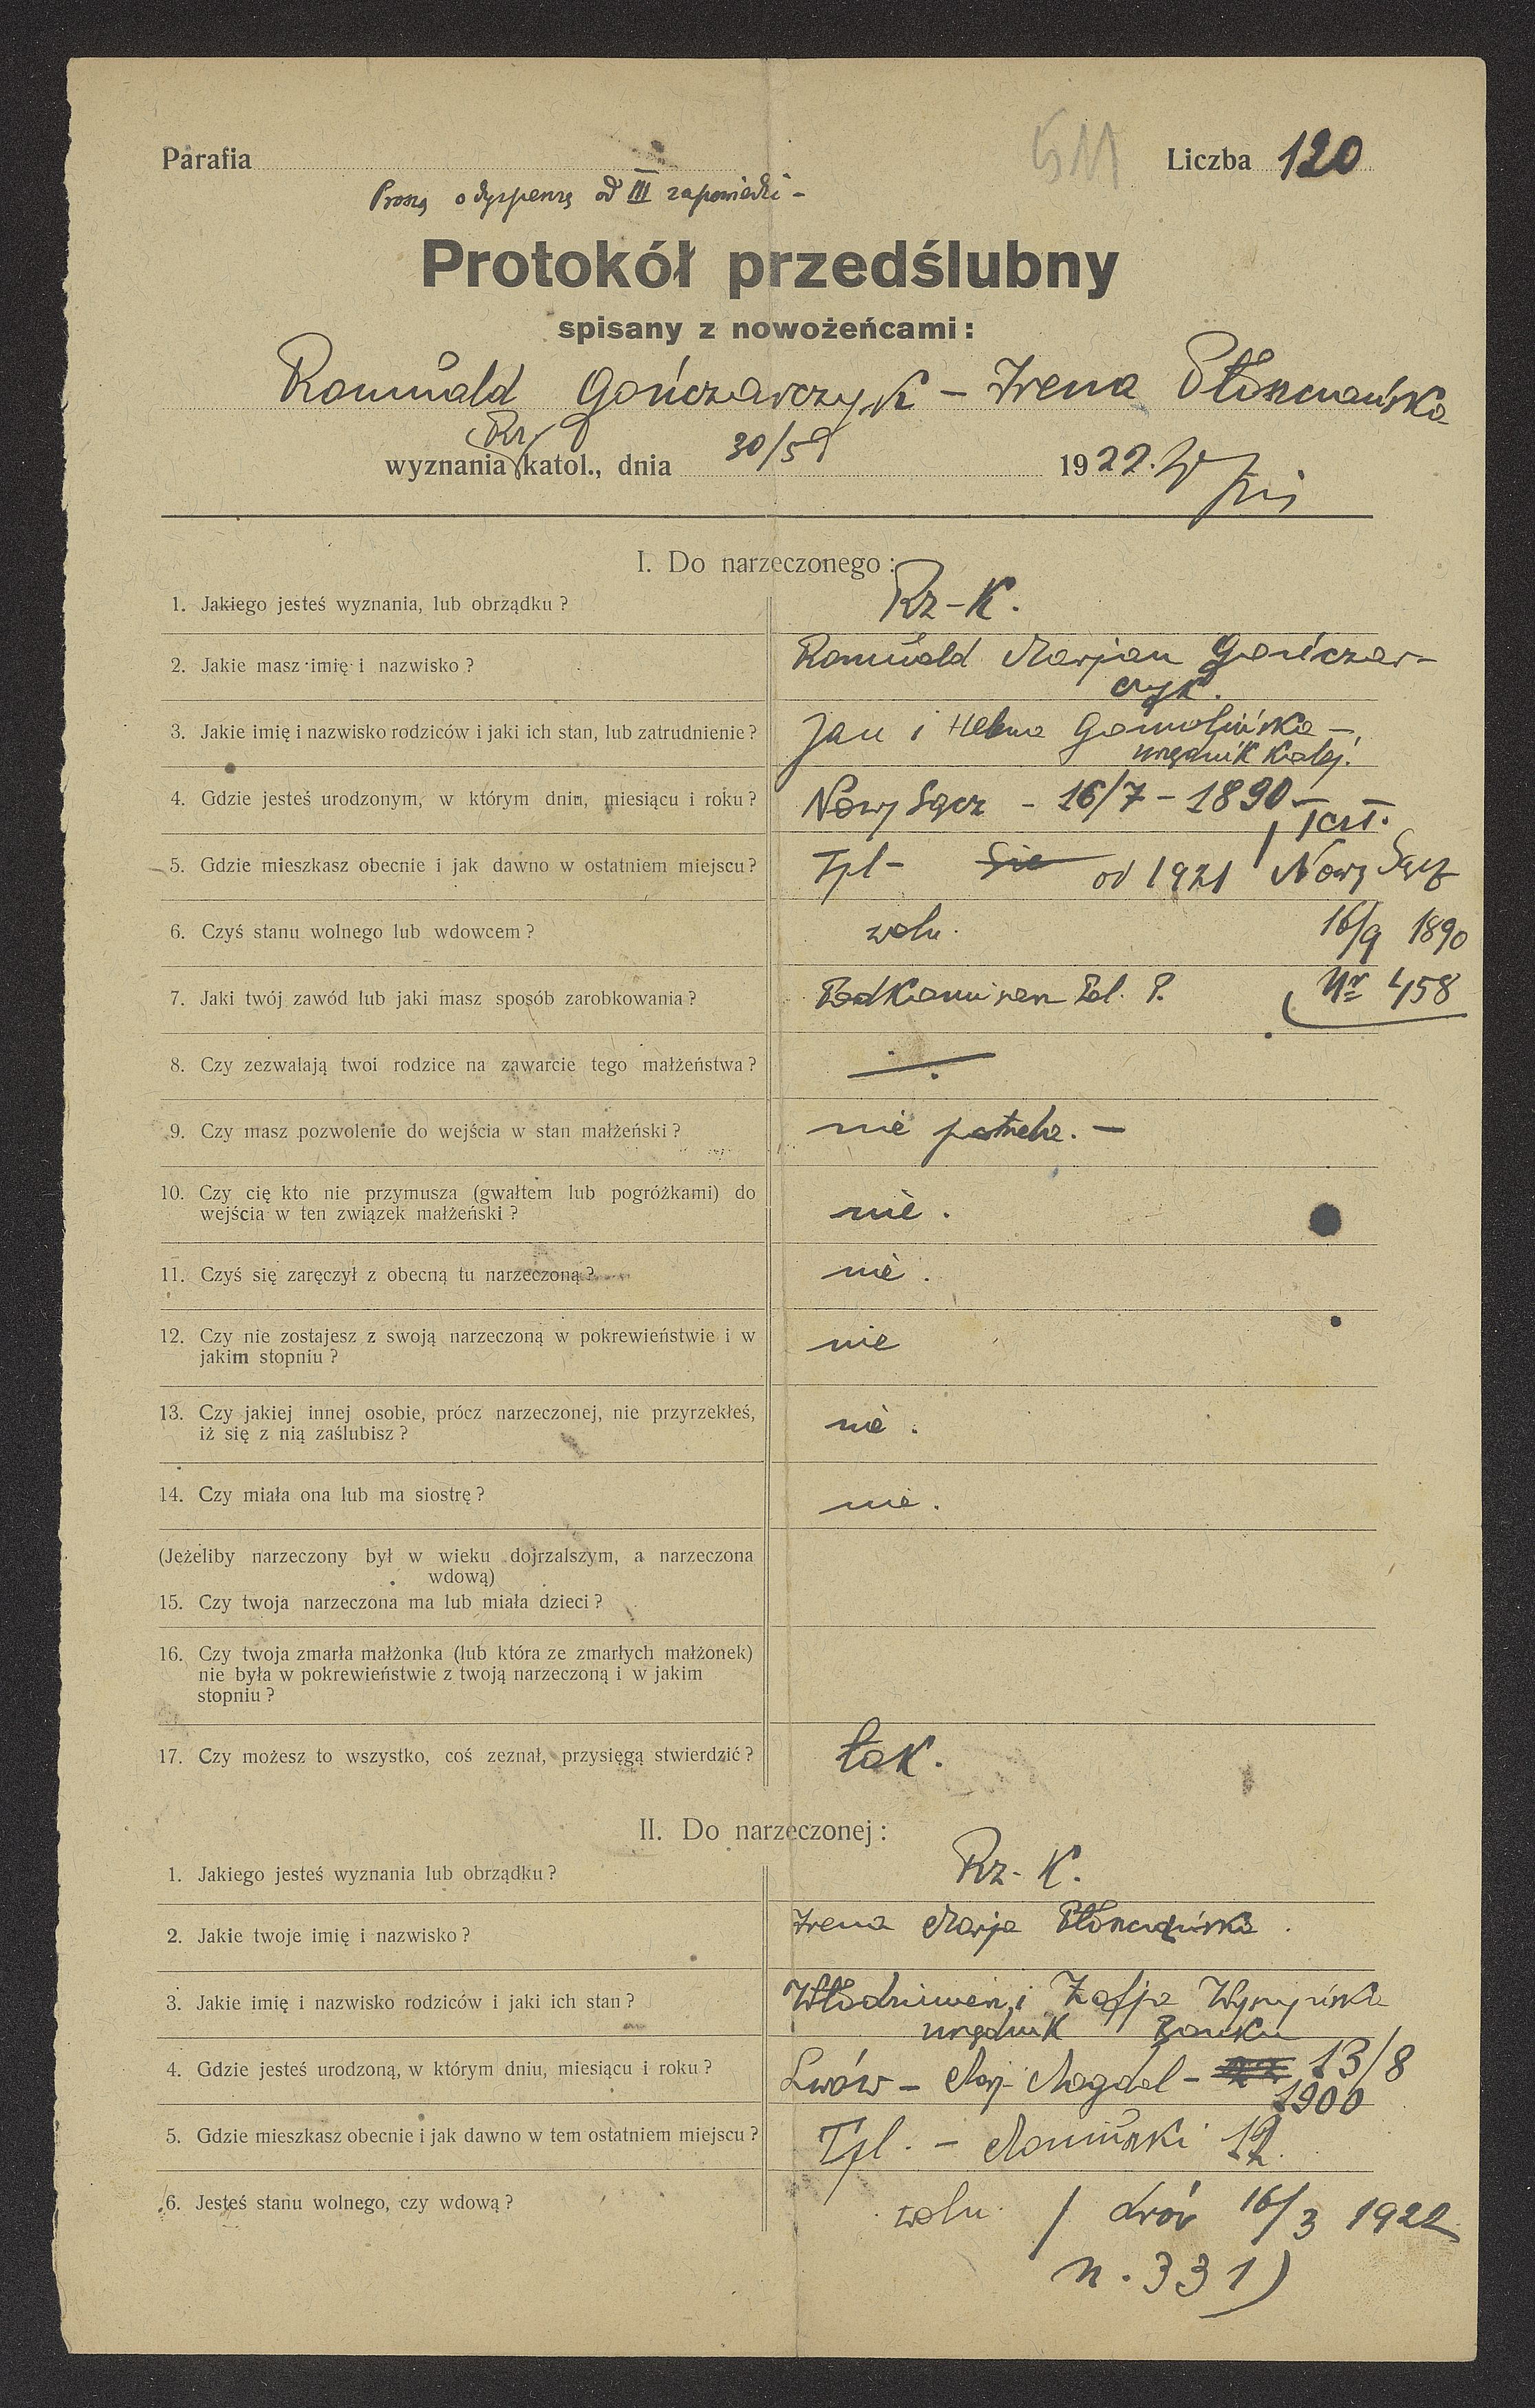 Parafia
511
Liczba 120
Proszę o dyspensę od III zapowiedzi -
Protokół przedślubny
spisany z nowożeńcami:
Romuald Gończarczyk - Irena
Rz
wyznania katol., dnia 30/5 1922.
I. Do narzeczonego:
1. Jakiego jesteś wyznania, lub obrządku? Rz-K.
2. Jakie masz imię i nazwisko? Romuald Marjan Gończar-
czyk.
3. Jakie imię i nazwisko rodziców i jaki ich stan, lub zatrudnienie? Jan i Helena
urzędnik kolej.
4. Gdzie jesteś urodzonym, w którym dniu, miesiącu i roku? Nowy Sącz - 16/7 - 1890 -
5. Gdzie mieszkasz obecnie i jak dawno w ostatniem miejscu? Tpl - od 1921 Nowy Sącz
6. Czyś stanu wolnego lub wdowcem? woln. 16/9 1890
7. Jaki twój zawód lub jaki masz sposób zarobkowania? Podkomisarz Pol. P. Nr 458
8. Czy zezwalają twoi rodzice na zawarcie tego małżeństwa?
9. Czy masz pozwolenie do wejścia w stan małżeński? nie potrzeba. -
10. Czy cię kto nie przymusza (gwałtem lub pogróżkami) do
wejścia w ten związek małżeński? nie.
11. Czyś się zaręczył z obecną tu narzeczoną? nie.
12. Czy nie zostajesz z swoją narzeczoną w pokrewieństwie i w
jakim stopniu? nie
13. Czy jakiej innej osobie, prócz narzeczonej, nie przyrzekłeś,
iż się z nią zaślubisz? nie.
14. Czy miała ona lub ma siostrę? nie.
(Jeżeliby narzeczony był w wieku dojrzalszym, a narzeczona
wdową)
15. Czy twoja narzeczona ma lub miała dzieci?
16. Czy twoja zmarła małżonka (lub która ze zmarłych małżonek)
nie była w pokrewieństwie z twoją narzeczoną i w jakim
stopniu?
17. Czy możesz to wszystko, coś zeznał, przysięgą stwierdzić? tak.
II. Do narzeczonej:
1. Jakiego jesteś wyznania lub obrządku? Rz-K.
2. Jakie twoje imię i nazwisko? Irena Marja
3. Jakie imię i nazwisko rodziców i jaki ich stan? Włodzimierz i Zofja
urzędnik Banku
4. Gdzie jesteś urodzoną, w którym dniu, miesiącu i roku? Lwów - Marj. Magdal - 13/8
1900
5. Gdzie mieszkasz obecnie i jak dawno w tem ostatniem miejscu? Tpl. - Moniuszki 12
6. Jesteś stanu wolnego, czy wdową? woln. / Lwów 16/3 1922
n. 331)